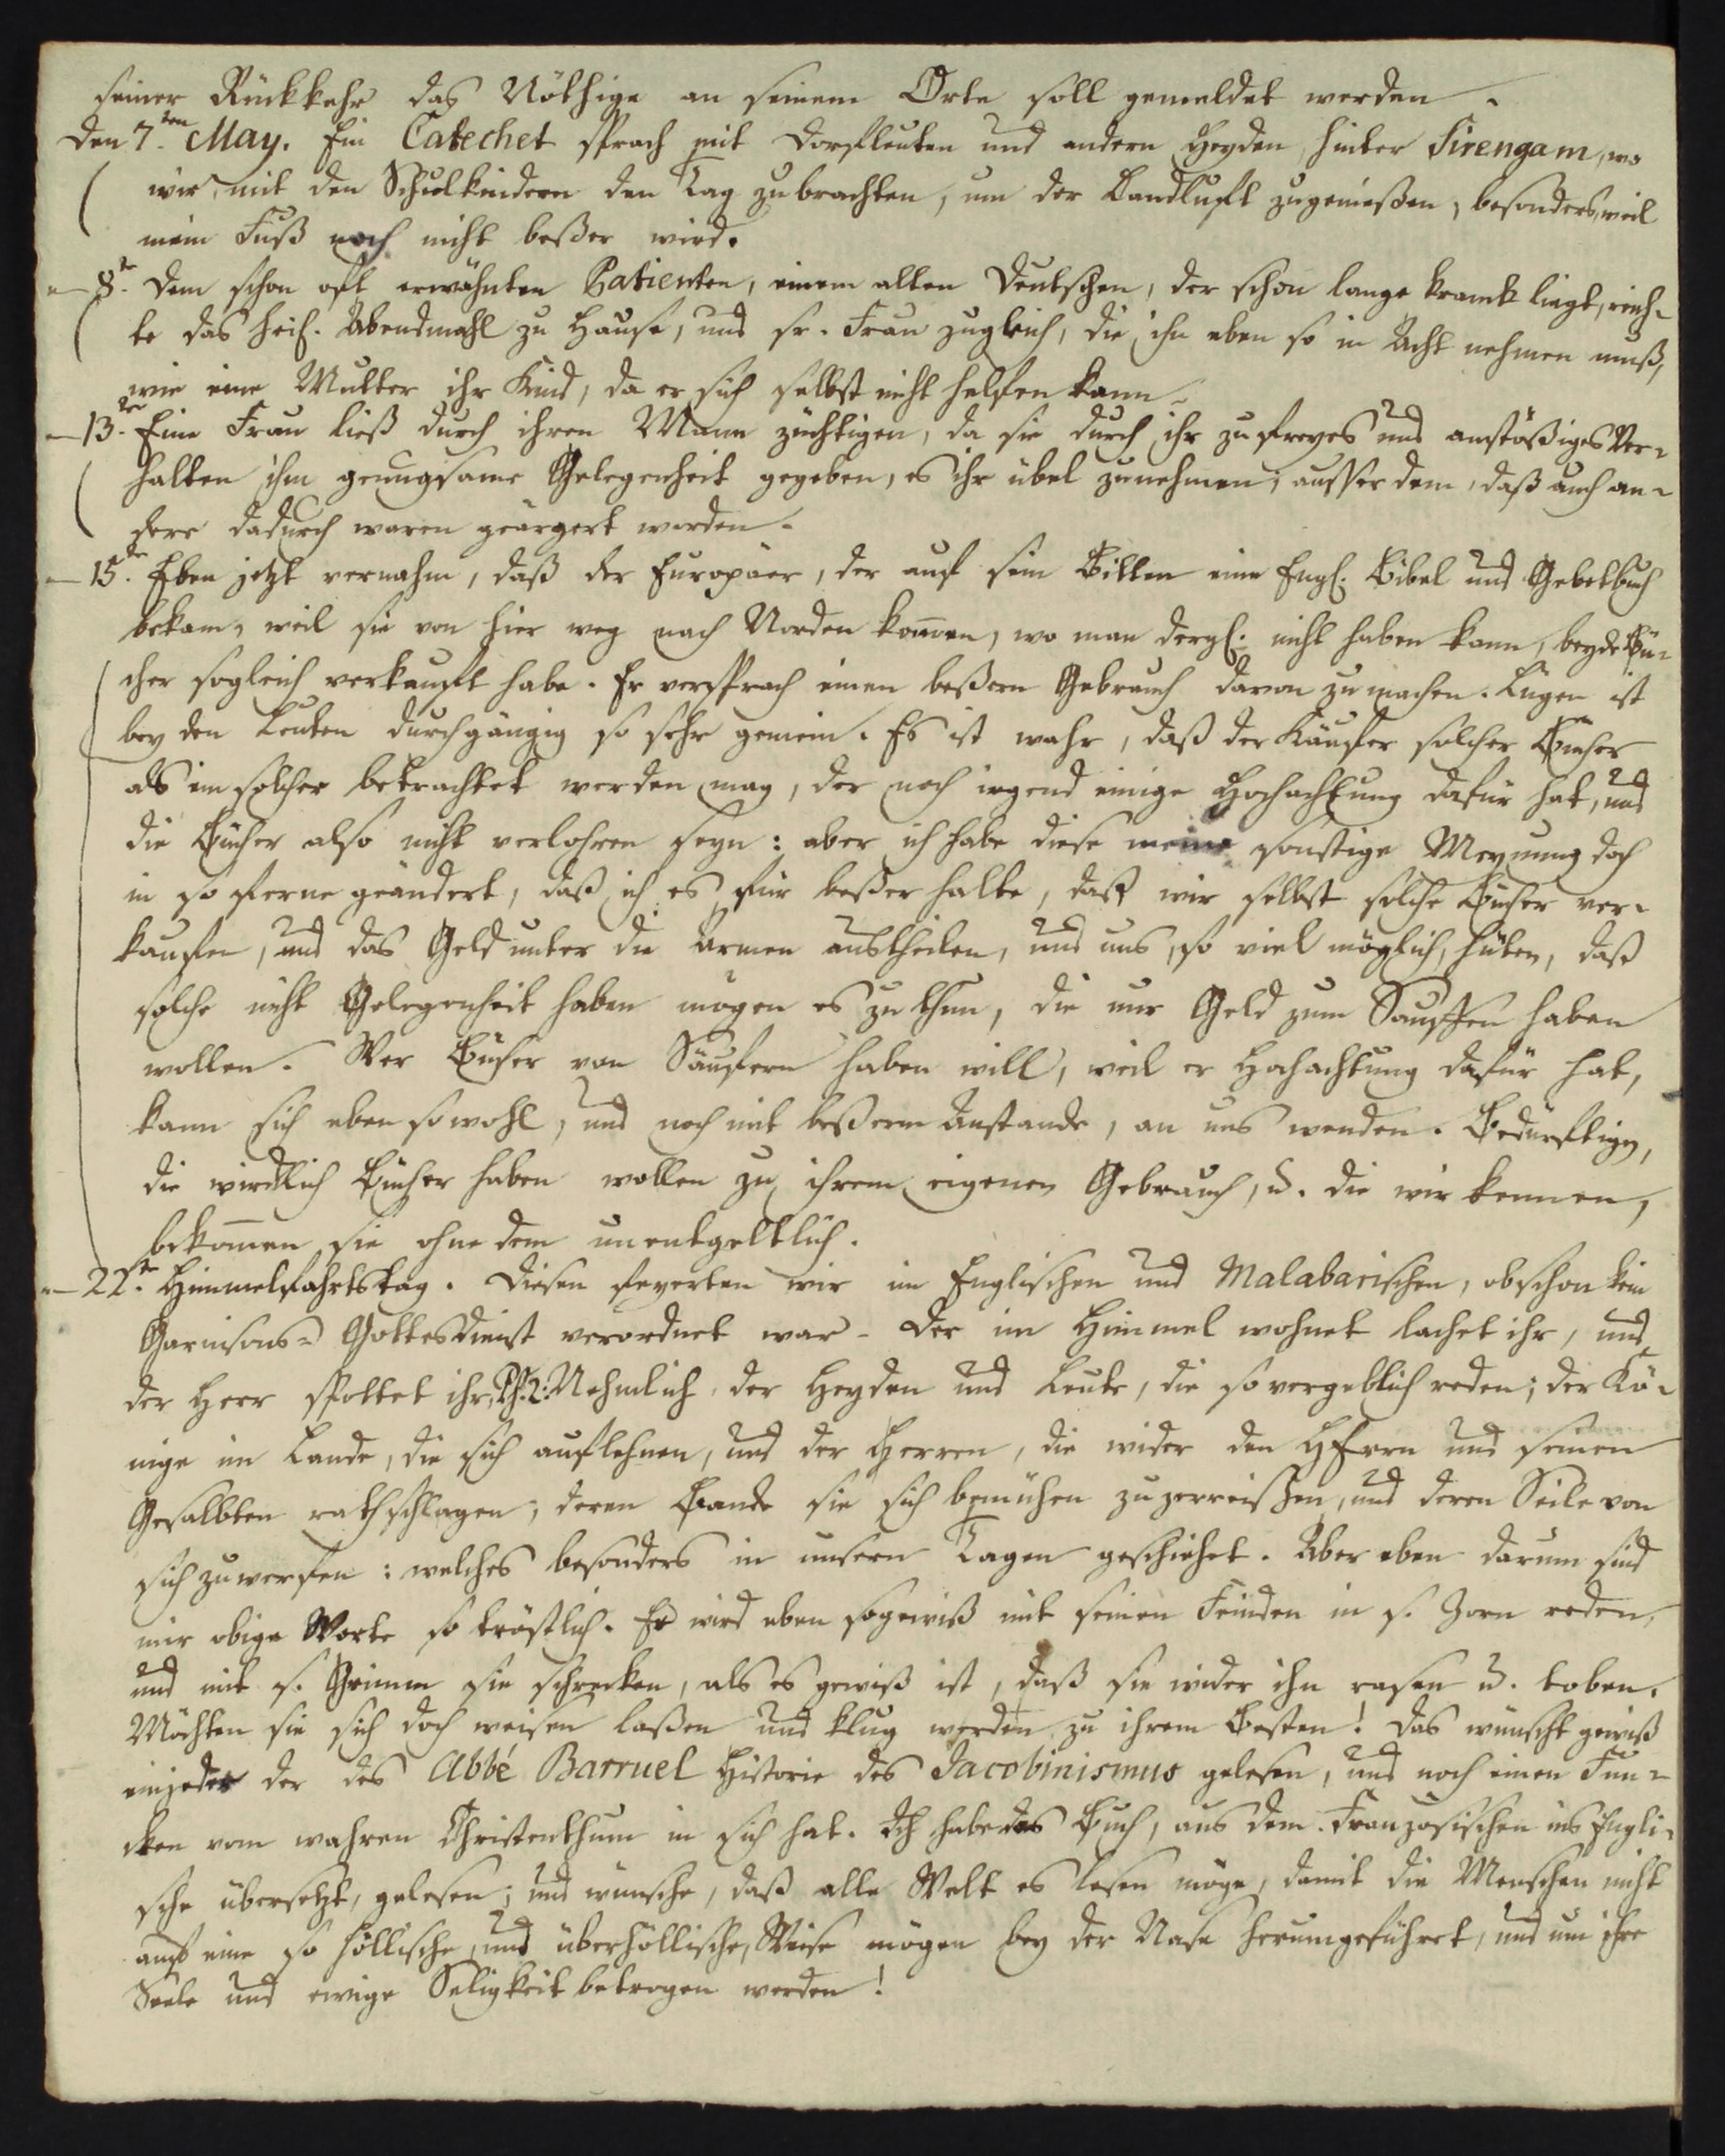 seiner Rückkehr das Nöthige an seinem Orte soll gemeldet werden.
Den 7.ten May. Ein Catechet sprach mit Dorfleuten und andern Heyden hinter Sirengam, wo
wir mit den Schulkindern den Tag zubrachten, um der Landluft zugenießen, besonders, weil
mein Fuß noch nicht beßer wird.
— 8.te Dem schon oft erwähnten Patienten, einem alten Deutschen, der schon lange kranck liegt, reich-
te das heil. Abendmahl zu Hause, und sr. Frau zugleich, die ihn eben so in Acht nehmen muß,
wie eine Mutter ihr Kind, da er sich selbst nicht helfen kann.
— 13.te Eine Frau ließ durch ihren Mann züchtigen, da sie durch ihr zu freyes und anstößiges Ver-
halten ihm genugsame Gelegenheit gegeben, es ihr übel zunehmen; ausser dem, daß auch an-
dere dadurch waren geärgert worden.
— 15.te Eben jetzt vernahm, daß der Europäer, der auf sein Bitten eine Engl. Bibel und Gebetbuch
bekam, weil sie von hier weg nach Norden kom̄en, wo man dergl. nicht haben kann, beyde Bü-
cher sogleich verkauft habe. Er versprach einen beßern Gebrauch davon zu machen. Lügen ist
bey den Leuten durchgängig so sehr gemein. Es ist wahr, daß der Käufer solcher Bücher
als ein solcher betrachtet werden mag, der noch irgend einige Hochachtung dafür hat, und
die Bücher also nicht verlohren seyn: aber ich habe diese meine sonstige Meynung doch
in so ferne geändert, daß ich es für beßer halte, daß wir selbst solche Bücher ver-
kaufen, und das Geld unter die Armen austheilen, und uns, so viel möglich, hüten, daß
solche nicht Gelegenheit haben mögen es zu thun, die nur Geld zum Sauffen haben
wollen. Wer Bücher von Säufern haben will, weil er Hochachtung dafür hat,
kann sich eben sowohl, und noch mit beßerm Anstande, an uns wenden. Bedürftige,
die wircklich Bücher haben wollen zu ihrem eigenen Gebrauch, u. die wir kennen,
bekom̄en sie ohne dem unentgeltlich.
— 22.te Himmelfahrtstag. Diesen feyerten wir im Englischen und Malabarischen, obschon kein
Garnisons- Gottesdienst verordnet war. Der im Himmel wohnet lachet ihr, und
der Herr spottet ihr, Ps. 2: Nehmlich der Heyden und Leute, die so vergeblich reden; der Kö-
nige im Lande, die sich auflehnen, und der Herren, die wider den HErrn und seinen
Gesalbten rathschlagen; deren Bande sie sich bemühen zu zerreißen, und deren Seile von
sich zu werfen: welches besonders in unsern Tagen geschiehet. Aber eben darum sind
mir obige Worte so tröstlich. Er wird eben so gewiß mit seinen Feinden in s. Zorn reden,
und mit s. Grimm sie schrecken, als es gewiß ist, daß sie wider ihn rasen u. toben.
Möchten sie sich doch weisen laßen und klug werden zu ihrem Besten! Das wünscht gewiß
ein jeder der des Abbé Barruel Historie des Jacobinismus gelesen, und noch einen Fun-
cken vom wahren Christenthum in sich hat. Ich habe das Buch, aus dem Französischen ins Engli-
sche übersetzt, gelesen; und wünsche, daß alle Welt es lesen möge, damit die Menschen nicht
auf eine so höllische, und überhöllische, Weise mögen bey der Nase herumgeführet, und um ihre
Seele und ewige Seligkeit betrogen werden!